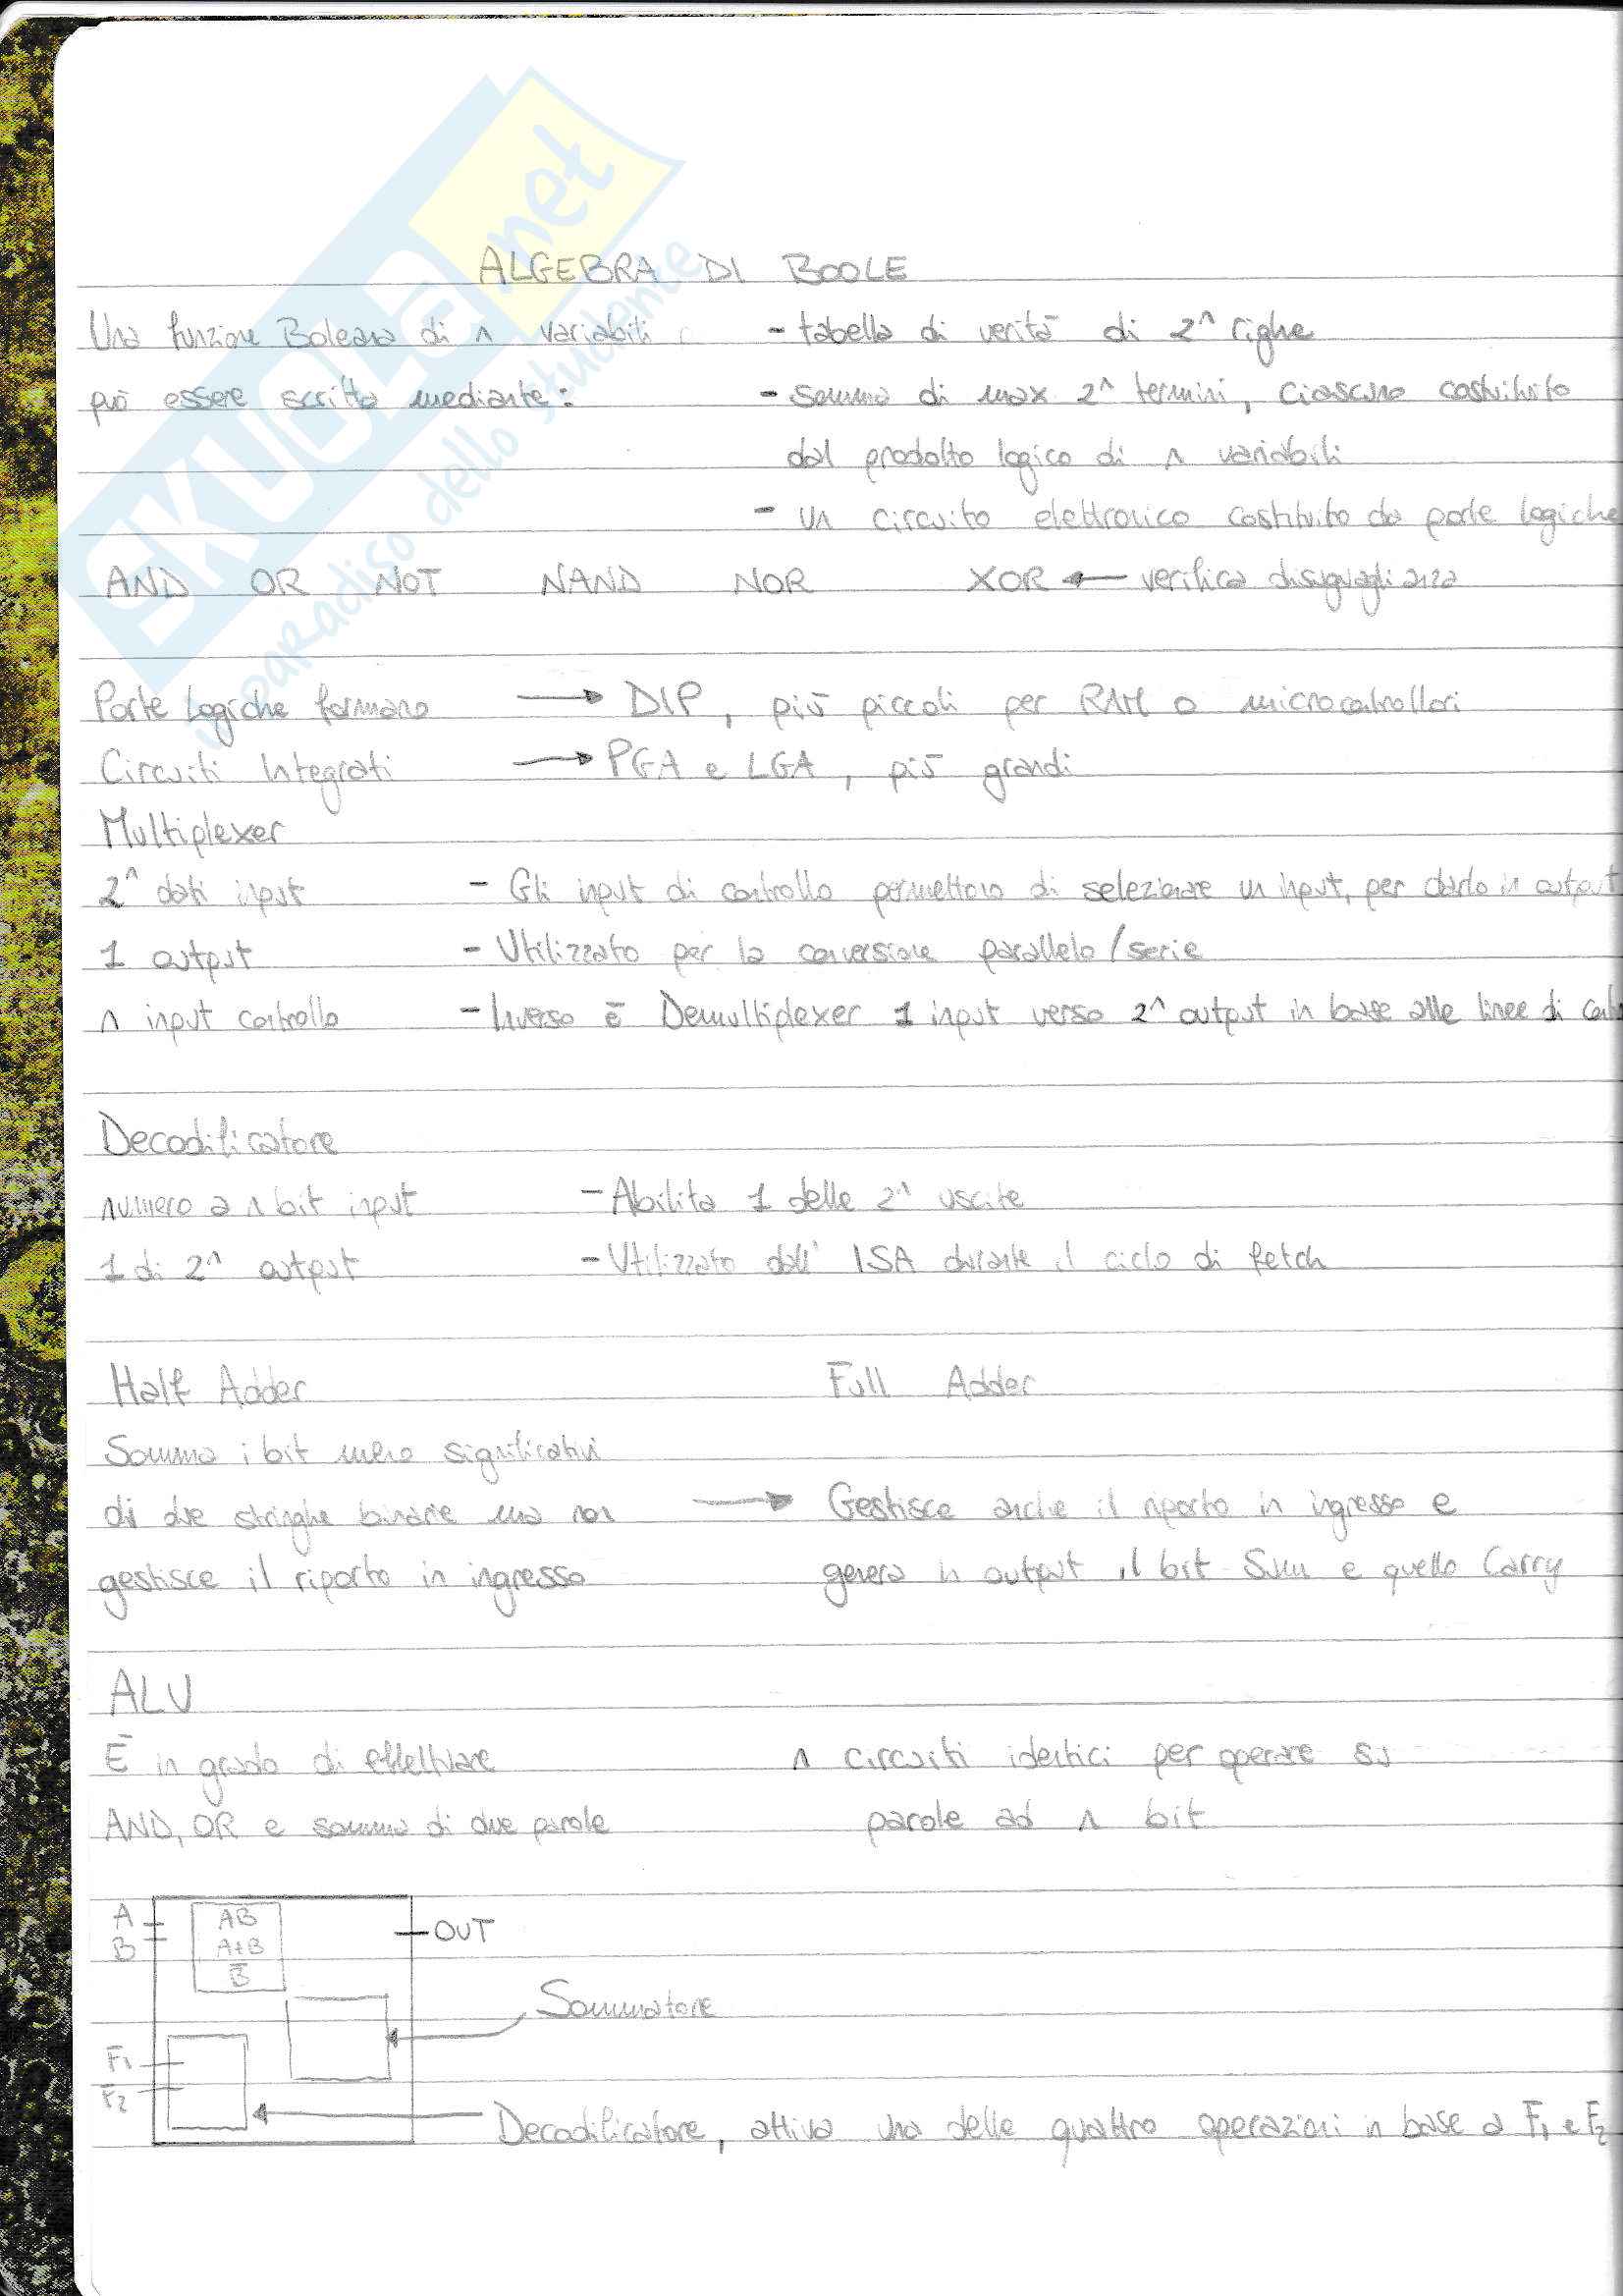 SKUOLA.net
il paradiso dello studente
ALGEBRA DI BOOLE
Una funzione Boleana di n variabili - tabella di verità di 2^n righe
può essere scritta mediante: - somma di max 2^n termini, ciascuno costituito
dal prodotto logico di n variabili
- un circuito elettronico costituito da porte logiche
AND OR NOT NAND NOR XOR ← verifica disuguaglianza
Porte Logiche formano → DIP, più piccoli per RAM o microcontrollori
Circuiti Integrati → PGA e LGA, più grandi
Multiplexer
2^n dati input - Gli input di controllo permettono di selezionare un input, per darlo in output
1 output - Utilizzato per la conversione parallelo/serie
n input controllo - Inverso è Demultiplexer 1 input verso 2^n output in base alle linee di
Decodificatore
numero a n bit input - Abilita 1 delle 2^n uscite
1 di 2^n output - Utilizzato dall' ISA durante il ciclo di fetch
Half Adder Full Adder
Somma i bit meno significativi
di due stringhe binarie ma non → Gestisce anche il riporto in ingresso e
gestisce il riporto in ingresso genera in output il bit Sum e quello Carry
ALU
È in grado di effettuare n circuiti identici per operare su
AND, OR e somma di due parole parole ad n bit
A AB OUT
B A+B
B̅
Sommatore
F1
F2
Decodificatore, attiva una delle quattro operazioni in base a F1 e F2